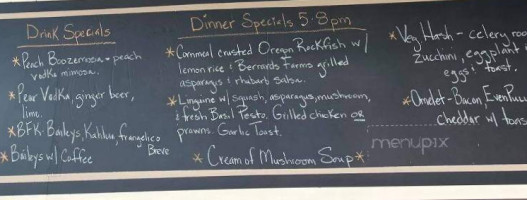 Drink Specials
*Peach Boozemosa - peach
vodka mimosa.
*Pear Vodka, ginger beer,
lime.
*BFK: Baileys, Kahlua, frangelico
Breve
*Baileys w/ Coffee
Dinner Specials 5-8pm
*Cornmeal crusted Oregon Rockfish w/
lemon rice & Bernards Farms grilled
asparagus & rhubarb salsa.
*Linguine w/ squash, asparagus, mushroom,
& fresh Basil Pesto. Grilled chicken or
prawns. Garlic Toast.
*Cream of Mushroom Soup*
*Veg Hash - celery roo
zucchini, eggplant
eggs & toast.
*Omelet - Bacon,
cheddar w/
menupix